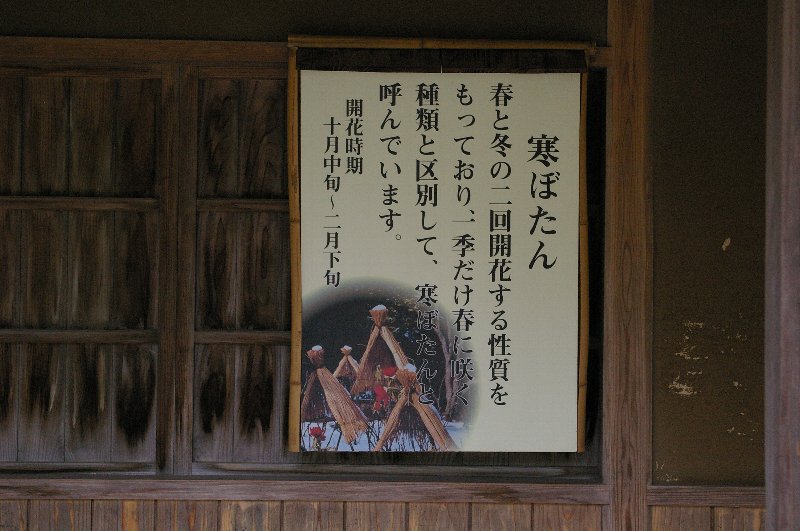 寒ぼたん
春と冬の二回開花する性質を
もっており、一季だけ春に咲く
種類と区別して、寒ぼたんと
呼んでいます。
開花時期
十月中旬～二月下旬